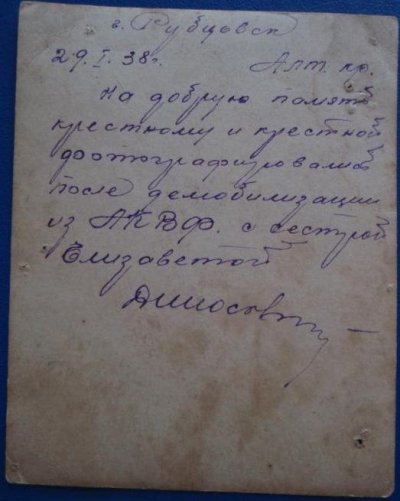 г. Рубцовск
29.I.38г. Алт. кр.
На добрую память
крестному и крестной
фотографировались
после демобилизации
из АКВФ. с сестрой
Елизаветой